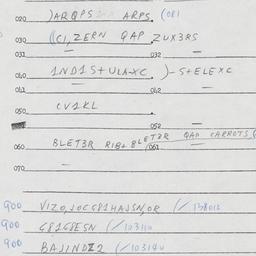 020 )ARQPS ARPS. (081
030 ((CI, ZERN QAP ZUX3RS
031 032
040 1ND1S+ULA-XC. )-S+ELEXC
041 042
050 CV1KL
052
060 BLET3R RIB+BLET3R QAD CARROTS (
061
070
900 VIZO,JOCC81HAJSN,OR (/138012
900 G81G8ESN (/103140
900 BAJINDZ2 (/103140